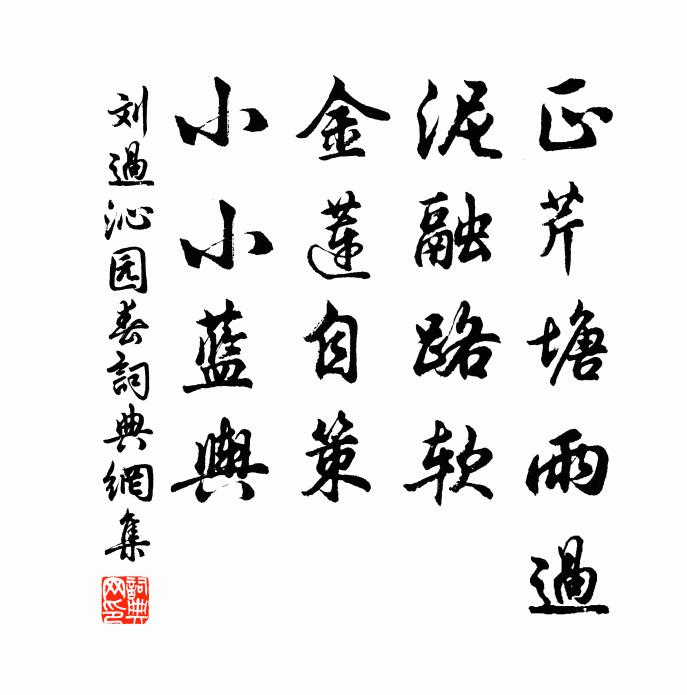 正芹塘雨過
泥融路软
金蓮自策
小小藍輿
刘過沁园春詞典網集
詞典网印